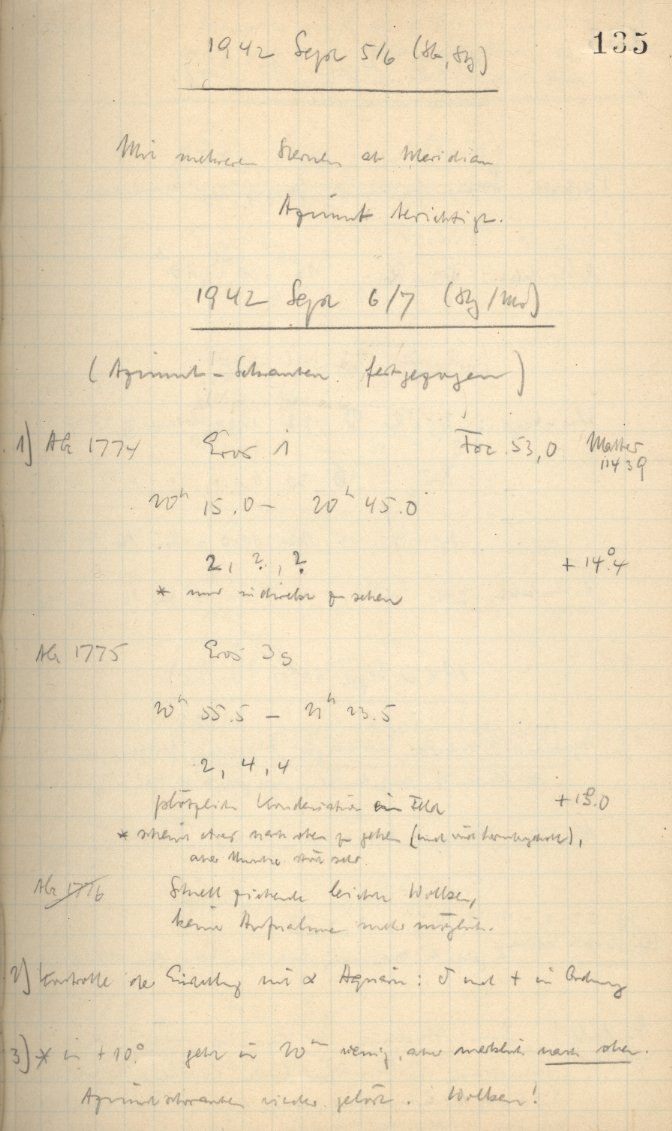 135
1942 Sept 5/6
Mit mehreren Sternen am Meridian
Azimut berichtigt.
1942 Sept 6/7
(Azimut-Schrauben festgezogen)
1) 1774 Eros 1 Foc. 53,0 Matter
11439
20h 15.0 – 20h 45.0
2, ?, ? +14°.4
* nur indirekt zu sehen
1775 Eros 39
20h 55.5 – 21h 23.5
2, 4, 4
plötzlich Kondensation im Feld +13.0
* scheint etwas nach oben zu gehen (
aber sehr.
1776 Schnell ziehende leichte Wolken,
keine Aufnahme mehr möglich.
2) Kontrolle der Einstellung mit α Aquarii: δ und t in Ordnung
3) * in +10° geht in 20m wenig, aber merklich nach oben.
Azimutschrauben wieder gelöst. Wolken!